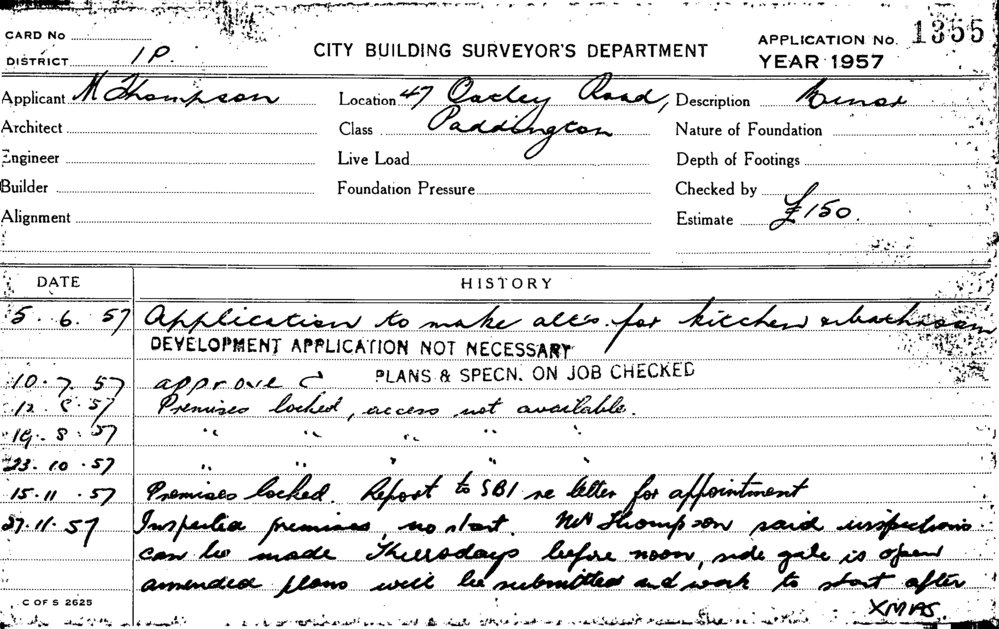 CARD No
CITY BUILDING SURVEYOR'S DEPARTMENT
APPLICATION No. 1355
DISTRICT 1P.
YEAR 1957
Applicant M Thompson
Location 47 Oatley Road,
Description Minor
Architect
Class Paddington
Nature of Foundation
Engineer
Live Load
Depth of Footings
Builder
Foundation Pressure
Checked by
Alignment
Estimate £150.
DATE HISTORY
5. 6. 57 Application to make alt's for kitchen & bathroom
DEVELOPMENT APPLICATION NOT NECESSARY
PLANS & SPECN. ON JOB CHECKED
10. 7. 57 approve C
12. 8. 57 Premises locked, access not available.
19. 8. 57 " " " " "
23. 10. 57 " " " " "
15. 11. 57 Premises locked. Report to SBI re letter for appointment
27. 11. 57 Inspected premises, no start. Thompson said inspections
can be made Thursdays before noon, side gate is open
amended plans will be submitted and work to start after
XMAS.
C OF S 2625